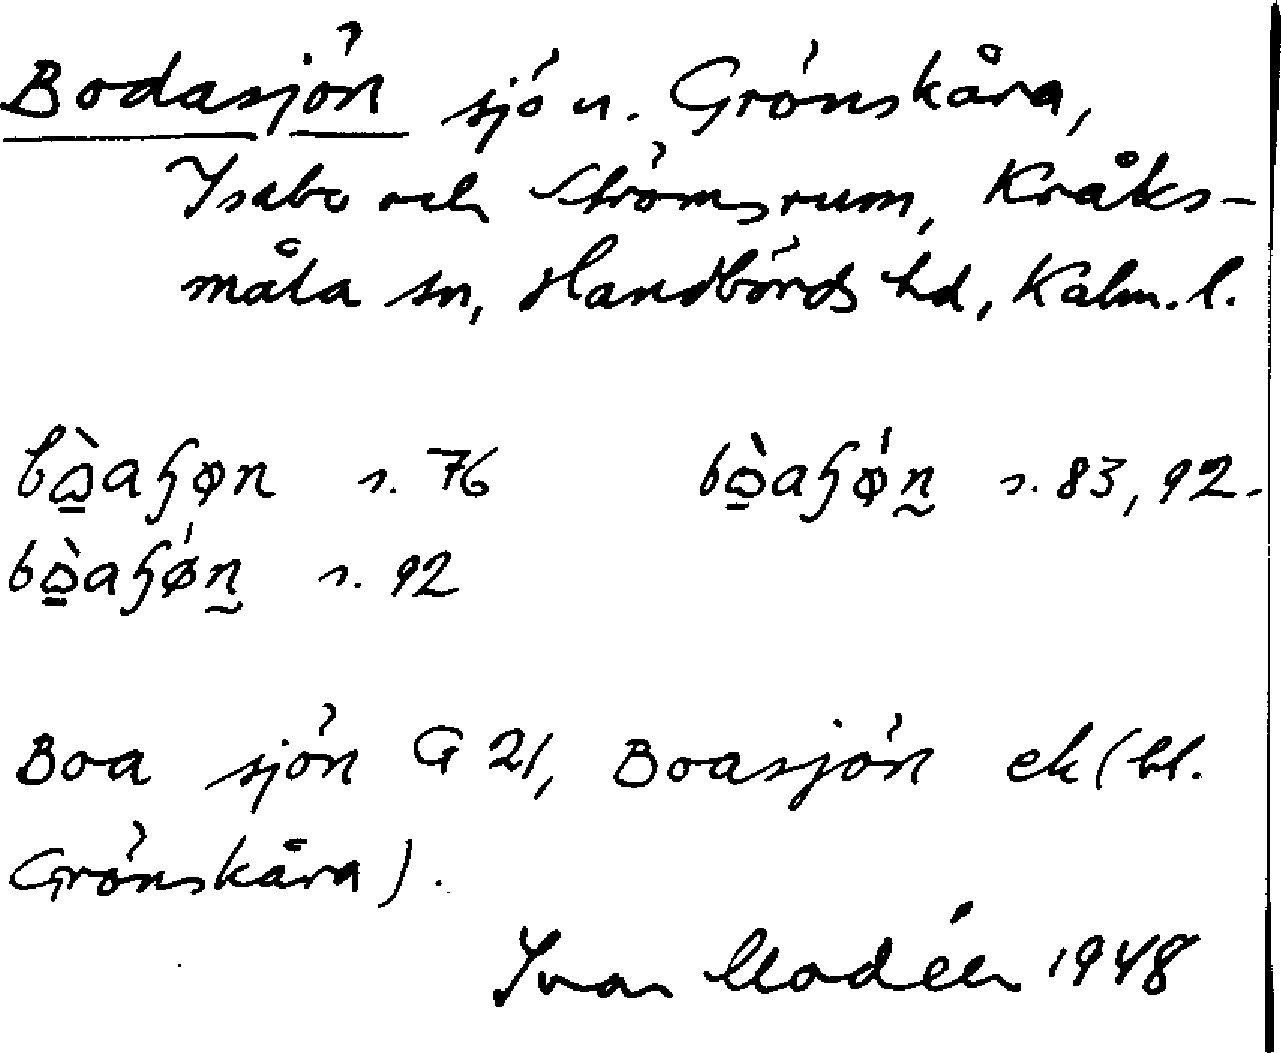 Bodasjön sjö u. Grönskåra,
Ysabo och Strömsrum, Kråks-
måla sn, Handbörds hd, Kalm. l.
s. 76 s. 83, 92.
s. 92
Boa sjön G 21, Boasjön ek (bl.
Grönskåra).
Ivar Modéer 1948